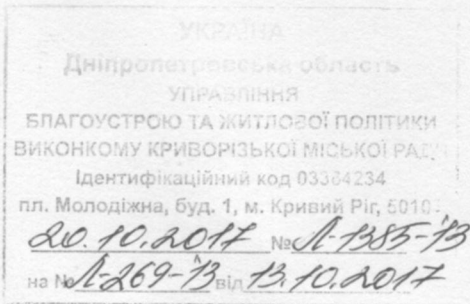 УКРАЇНА
Дніпропетровська область
УПРАВЛІННЯ
БЛАГОУСТРОЮ ТА ЖИТЛОВОЇ ПОЛІТИКИ
ВИКОНКОМУ КРИВОРІЗЬКОЇ МІСЬКОЇ РАДИ
Ідентифікаційний код 03364234
пл. Молодіжна, буд. 1, м. Кривий Ріг, 5010
20.10.2017 № Л-1385-ÿ3
на № Л-269-ÿ3 від 13.10.2017